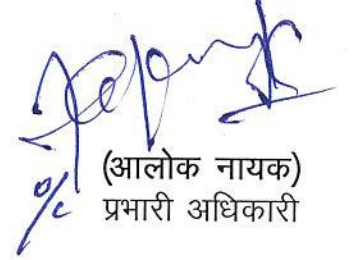 (आलोक नायक)
o/c प्रभारी अधिकारी